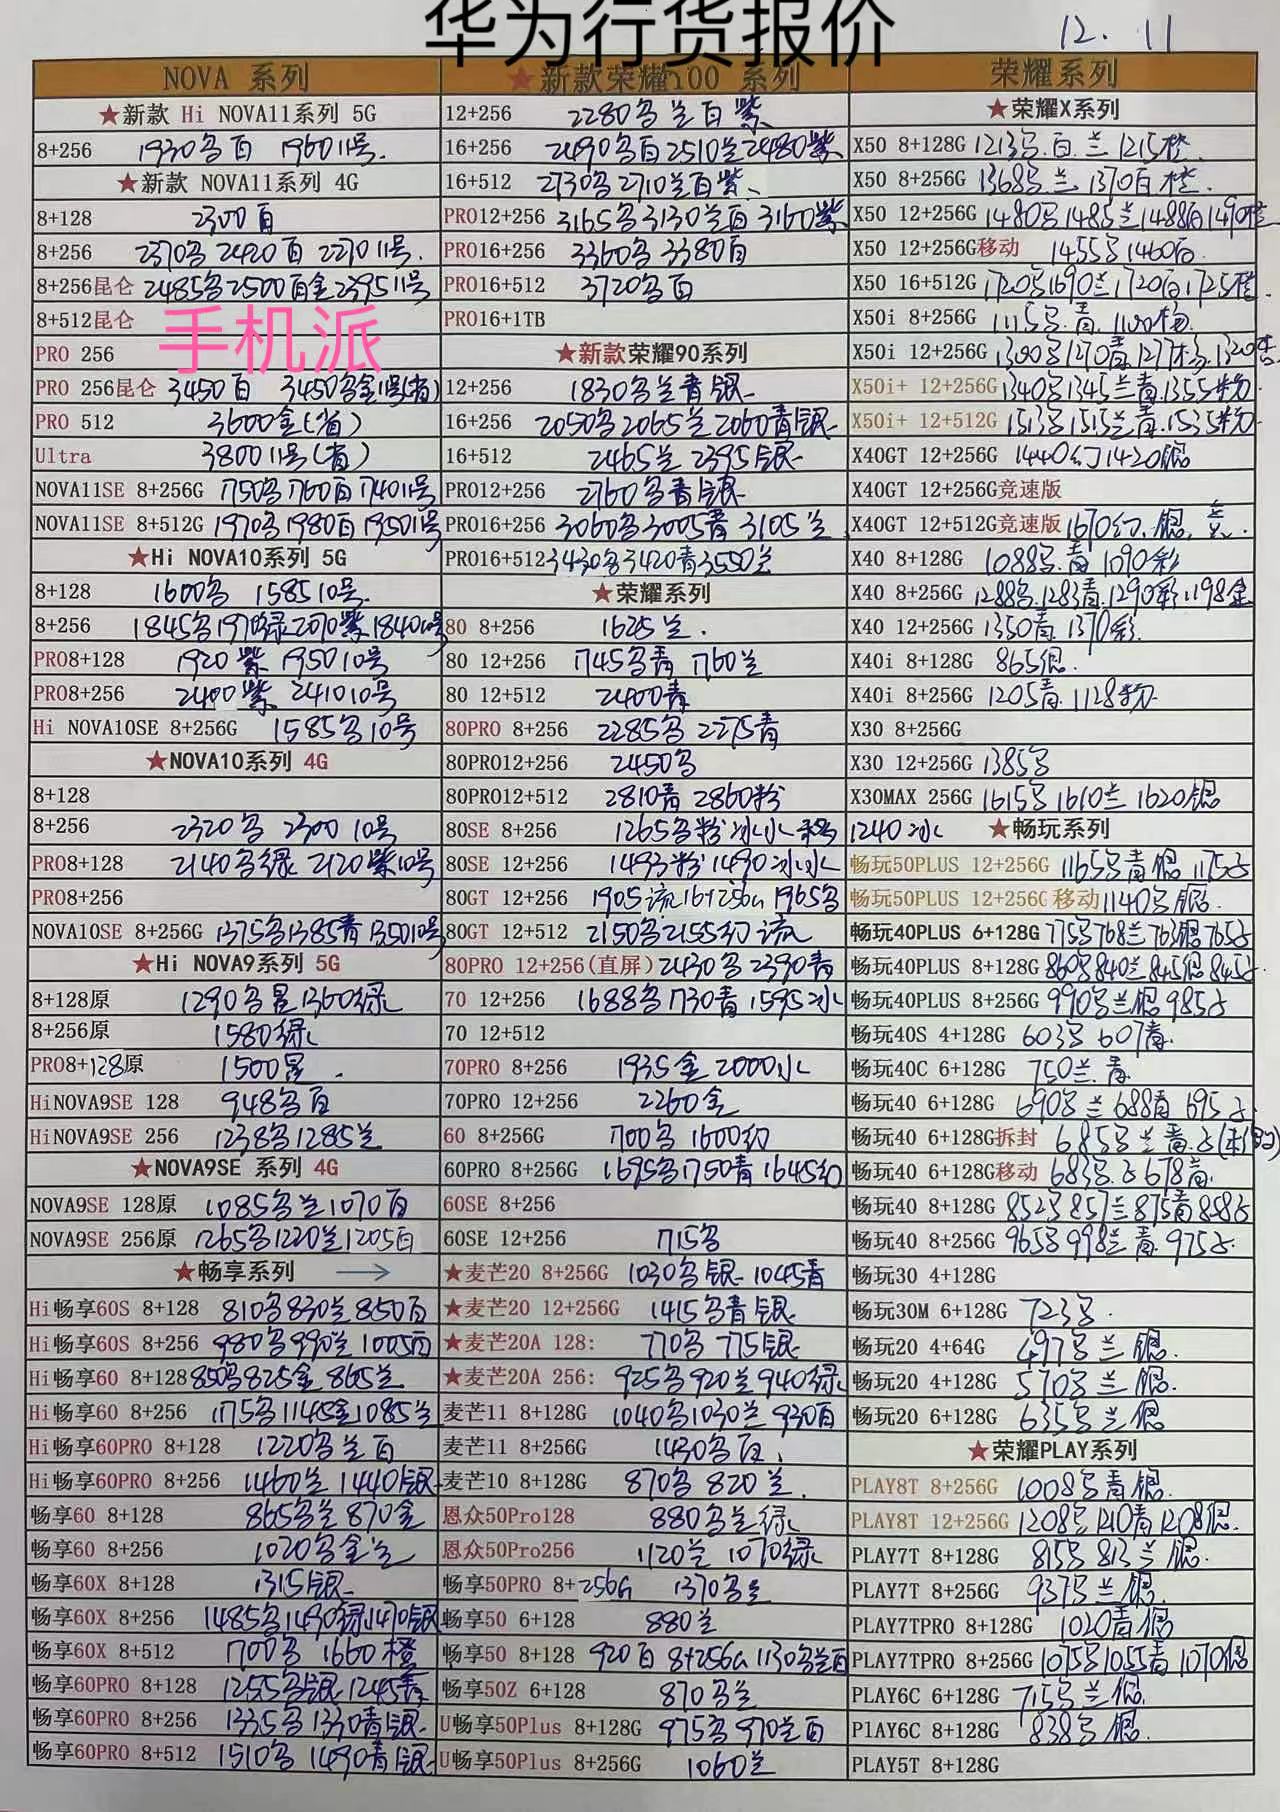 华为行货报价
12.11
NOVA 系列
★新款 Hi NOVA11系列 5G
8+256 1930名百 1960 11号.
★新款 NOVA11系列 4G
8+128 2300百
8+256 2370名 2420百 2270 11号.
8+256昆仑 2485名2500百金2395 11号
8+512昆仑
手机派
PRO 256
PRO 256昆仑 3450百 3450名金11号(省)
PRO 512 3600金(省)
Ultra 3800 11号(省)
NOVA11SE 8+256G 1750名1760百1740 11号
NOVA11SE 8+512G 1970名1980百1950 11号
★Hi NOVA10系列 5G
8+128 1600名 1585 10号.
8+256 1845名1970绿2070紫1840 10号
PRO8+128 1920紫 1950 10号
PRO8+256 2400紫 2410 10号
Hi NOVA10SE 8+256G 1585名10号
★NOVA10系列 4G
8+128
8+256 2320名 2300 10号
PRO8+128 2140名绿 2120紫10号
PRO8+256
NOVA10SE 8+256G 1375名1385青1350 10号
★Hi NOVA9系列 5G
8+128原 1290名星1360绿
8+256原 1580绿
PRO8+128原 1500星.
HiNOVA9SE 128 948名百
HiNOVA9SE 256 1238名1285兰
★NOVA9SE 系列 4G
NOVA9SE 128原 1085名兰1070百
NOVA9SE 256原 1265名1220兰1205百
★畅享系列 →
Hi畅享60S 8+128 810名830兰850百
Hi畅享60S 8+256 980名990兰1005百
Hi畅享60 8+128 850名825金865兰
Hi畅享60 8+256 1175名1145金1085兰
Hi畅享60PRO 8+128 1220名兰百
Hi畅享60PRO 8+256 1460兰1440银
畅享60 8+128 865名兰870金
畅享60 8+256 1020名金兰
畅享60X 8+128 1315银
畅享60X 8+256 1485名1490绿1470银
畅享60X 8+512 1700名 1660橙
畅享60PRO 8+128 1255名银1245青
畅享60PRO 8+256 1335名1330青银
畅享60PRO 8+512 1510名 1490青银
★新款荣耀100 系列
12+256 2280名兰百紫
16+256 2490名百2510兰2480紫
16+512 2730名2710兰百紫
PRO12+256 3165名3130兰百3160紫
PRO16+256 3360名 3380百
PRO16+512 3720名百
PRO16+1TB
★新款荣耀90系列
12+256 1830名兰青银
16+256 2050名2065兰2060青银
16+512 2465兰2395银
PRO12+256 2760名青银
PRO16+256 3060名3005青 3105兰
PRO16+512 3430名3420青3550兰
★荣耀系列
80 8+256 1625兰.
80 12+256 1745名青 1760兰
80 12+512 2400青
80PRO 8+256 2285名 2275青
80PRO12+256 2450名
80PRO12+512 2810青 2860粉
80SE 8+256 1265名粉冰水 移 1240冰
80SE 12+256 1493粉1490冰水
80GT 12+256 1905流16+256G 1965名
80GT 12+512 2150名2155幻 流
80PRO 12+256(直屏) 2430名2390青
70 12+256 1688名1730青1595冰
70 12+512
70PRO 8+256 1935金2000水
70PRO 12+256 2260金
60 8+256G 1700名 1600幻
60PRO 8+256G 1695名1750青1645幻
60SE 8+256
60SE 12+256 1715名
★麦芒20 8+256G 1030名银 1045青
★麦芒20 12+256G 1415名青银
★麦芒20A 128: 770名 775银
★麦芒20A 256: 925名920兰940绿
麦芒11 8+128G 1040名1030兰930百
麦芒11 8+256G 1430名百
麦芒10 8+128G 870名 820兰.
恩众50Pro128 880名兰绿
恩众50Pro256 1120兰 1070绿
畅享50PRO 8+256G 1370名兰
畅享50 6+128 880兰
畅享50 8+128 920百 8+256G 1130名兰百
畅享50Z 6+128 870名兰
U畅享50Plus 8+128G 975名970兰百
U畅享50Plus 8+256G 1060兰
荣耀系列
★荣耀X系列
X50 8+128G 1213名.百.兰 1215橙.
X50 8+256G 1368名.兰.1370百橙.
X50 12+256G 1480名1485兰1488百1490橙
X50 12+256G移动 1455名1460百.
X50 16+512G 1720名1690兰1720百1725橙.
X50i 8+256G 1115名.青.1100杨.
X50i 12+256G 1300名1270青1277杨.1320
X50i+ 12+256G 1340名1345兰青.1355粉.
X50i+ 12+512G 1513名1515兰青.1535粉
X40GT 12+256G 1440幻1420银
X40GT 12+256G竞速版
X40GT 12+512G竞速版 1670幻.银.
X40 8+128G 1088名.青1090彩
X40 8+256G 1288名.1283青.1290彩.1198金
X40 12+256G 1350青1370彩.
X40i 8+128G 865银.
X40i 8+256G 1205青.1128粉
X30 8+256G
X30 12+256G 1385名
X30MAX 256G 1615名1610兰1620银
★畅玩系列
畅玩50PLUS 12+256G 1165名青银1175
畅玩50PLUS 12+256G 移动 1140名银.
畅玩40PLUS 6+128G 775名768兰763银765
畅玩40PLUS 8+128G 860名840兰845银845
畅玩40PLUS 8+256G 990名兰银985
畅玩40S 4+128G 603名607青.
畅玩40C 6+128G 750兰.青.
畅玩40 6+128G 690名兰688青695
畅玩40 6+128G拆封 685名兰青
畅玩40 6+128G移动 683名 678青.
畅玩40 8+128G 852名857兰875青858
畅玩40 8+256G 965名998兰青.975
畅玩30 4+128G
畅玩30M 6+128G 723名.
畅玩20 4+64G 497名兰银.
畅玩20 4+128G 570名兰银.
畅玩20 6+128G 635名兰银
★荣耀PLAY系列
PLAY8T 8+256G 1008名青银.
PLAY8T 12+256G 1208名1210青1208银.
PLAY7T 8+128G 815名813兰银.
PLAY7T 8+256G 937名兰银.
PLAY7TPRO 8+128G 1020青银
PLAY7TPRO 8+256G 1075名1055青1070银
PLAY6C 6+128G 715名兰银.
P1AY6C 8+128G 838名银.
PLAY5T 8+128G